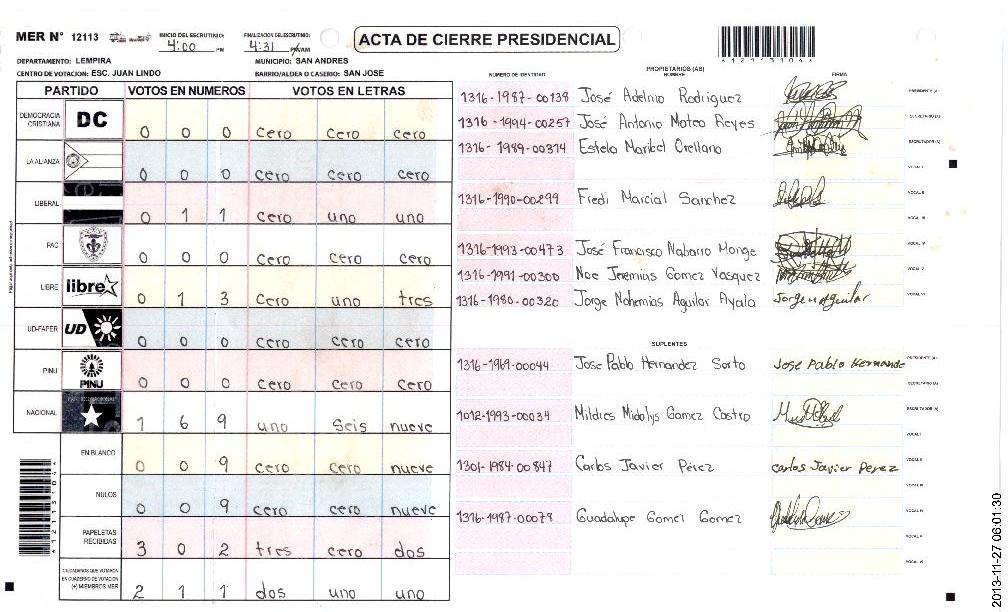 MER N° 12113
INICIO DEL ESCRUTINIO: 4:00 PM
FINALIZACION DEL ESCRUTINIO: 4:31 PM/AM
ACTA DE CIERRE PRESIDENCIAL
DEPARTAMENTO: LEMPIRA
MUNICIPIO: SAN ANDRES
CENTRO DE VOTACION: ESC. JUAN LINDO
BARRIO/ALDEA O CASERIO: SAN JOSE
PARTIDO VOTOS EN NUMEROS VOTOS EN LETRAS
DEMOCRACIA CRISTIANA DC 0 0 0 cero cero cero
LA ALIANZA 0 0 0 cero cero cero
LIBERAL 0 1 1 cero uno uno
PAC 0 0 0 cero cero cero
LIBRE libre 0 1 3 cero uno tres
UD-FAPER UD 0 0 0 cero cero cero
PINU PINU 0 0 0 cero cero cero
NACIONAL 1 6 9 uno seis nueve
EN BLANCO 0 0 9 cero cero nueve
NULOS 0 0 9 cero cero nueve
PAPELETAS RECIBIDAS 3 0 2 tres cero dos
CIUDADANOS QUE VOTARON EN CUADERNO DE VOTACION (+) MIEMBROS MER 2 1 1 dos uno uno
PROPIETARIOS (AS)
NUMERO DE IDENTIDAD NOMBRE FIRMA
1316-1987-00138 José Adelmo Rodriguez PRESIDENTE (A)
1316-1994-00257 José Antonio Mateo Reyes SECRETARIO (A)
1316-1989-00314 Estela Maribel Orellano ESCRUTADOR (A)
VOCAL I
1316-1990-00299 Fredi Marcial Sanchez VOCAL II
VOCAL III
1316-1993-00473 José Francisco Nabarro Monge VOCAL IV
1316-1991-00300 Noe Jeremias Gomez Vasquez VOCAL V
1316-1980-00320 Jorge Nohemias Aguilar Ayala Jorge n Aguilar VOCAL VI
SUPLENTES
1316-1969-00044 Jose Pablo Hernandez Sorto Jose Pablo Hernande PRESIDENTE (A)
SECRETARIO (A)
1012-1993-00034 Mildres Midalys Gomez Castro ESCRUTADOR (A)
VOCAL I
1301-1984-00847 Carlos Javier Pérez carlos Javier Perez VOCAL II
VOCAL III
1316-1987-00079 Guadalupe Gomez Gomez VOCAL IV
VOCAL V
VOCAL VI
2013-11-27 06:01:30